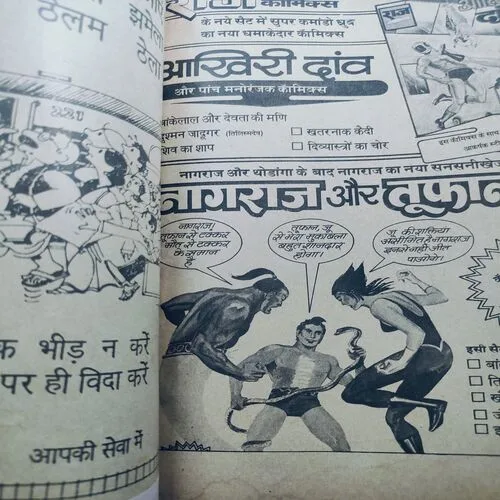 ठेलम
झमेल
ठेला
क भीड़ न करें
पर ही विदा करें
आपकी सेवा में
कॉमिक्स
के नये सैट में सुपर कमांडो ध्रुव
का नया धमाकेदार कॉमिक्स
आखिरी दांव
और पांच मनोरंजक कॉमिक्स
बांकेलाल और देवता की मणि
दुश्मन जादूगर (तिलिस्मदेव)
शिव का शाप
खतरनाक कैदी
दिव्यास्त्रों का चोर
राज
नागराज और थोडांगा के बाद नागराज का नया सनसनीखेज
नागराज और तूफान
नागराज!
तूफान से टक्कर
मौत से टक्कर
के समान
है
तूफान, जू
से मेरा मुकाबला
बहुत शानदार
होगा।
जू की शक्तियां
असीमित हैं नागराज
इनसे नहीं जीत
पाओगे।
इसी सै
बां
ति